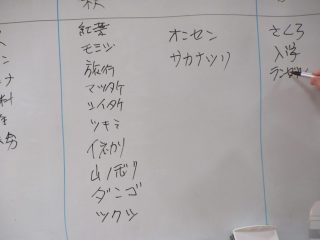 紅葉
モミジ
旅行
マツタケ
シイタケ
ツキミ
イネカリ
山ノボリ
ダンゴ
ツクシ
オンセン
サカナツリ
さくら
入学